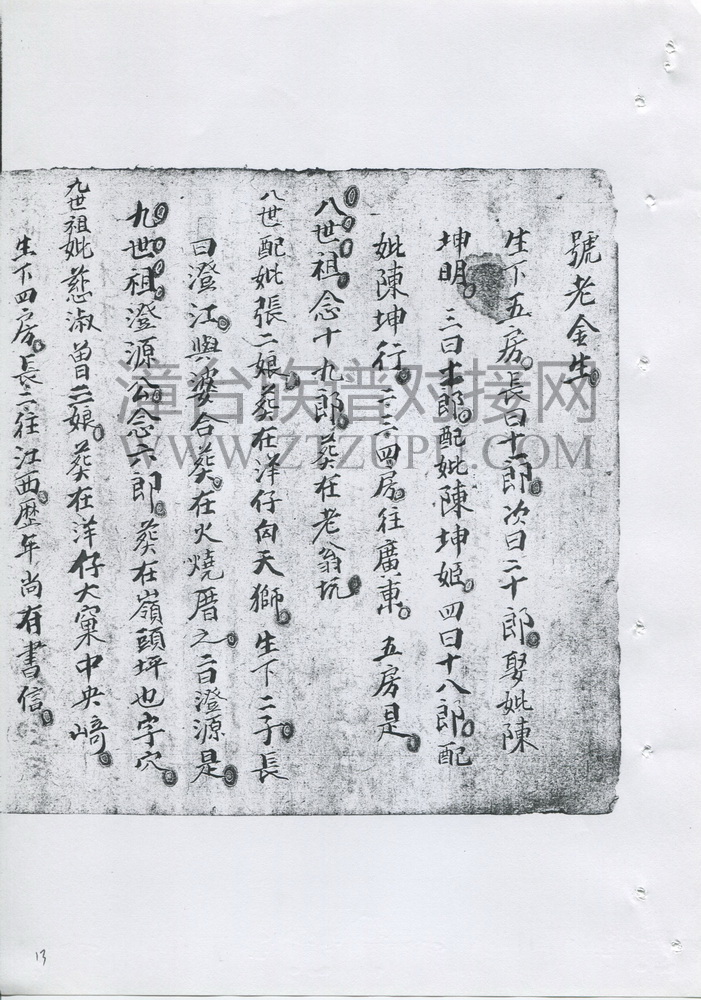 號老金生
生下五房長曰十一郎次曰二十郎娶妣陳
坤明三曰十郎配妣陳坤姬四曰十八郎配
妣陳坤行二三四房往廣東五房是
八世祖念十九郎葬在老翁坑
八世配妣張二娘葬在洋仔凹天獅生下二子長
曰澄江與婆合葬在火燒厝之二曰澄源是
九世祖澄源公念六郎葬在嶺頭坪也字穴
九世祖妣慈淑曾二娘葬在洋仔大窠中央崎
生下四房長二往江西歷年尚有書信
漳台族谱对接网
WWW.ZTZUPU.COM
13